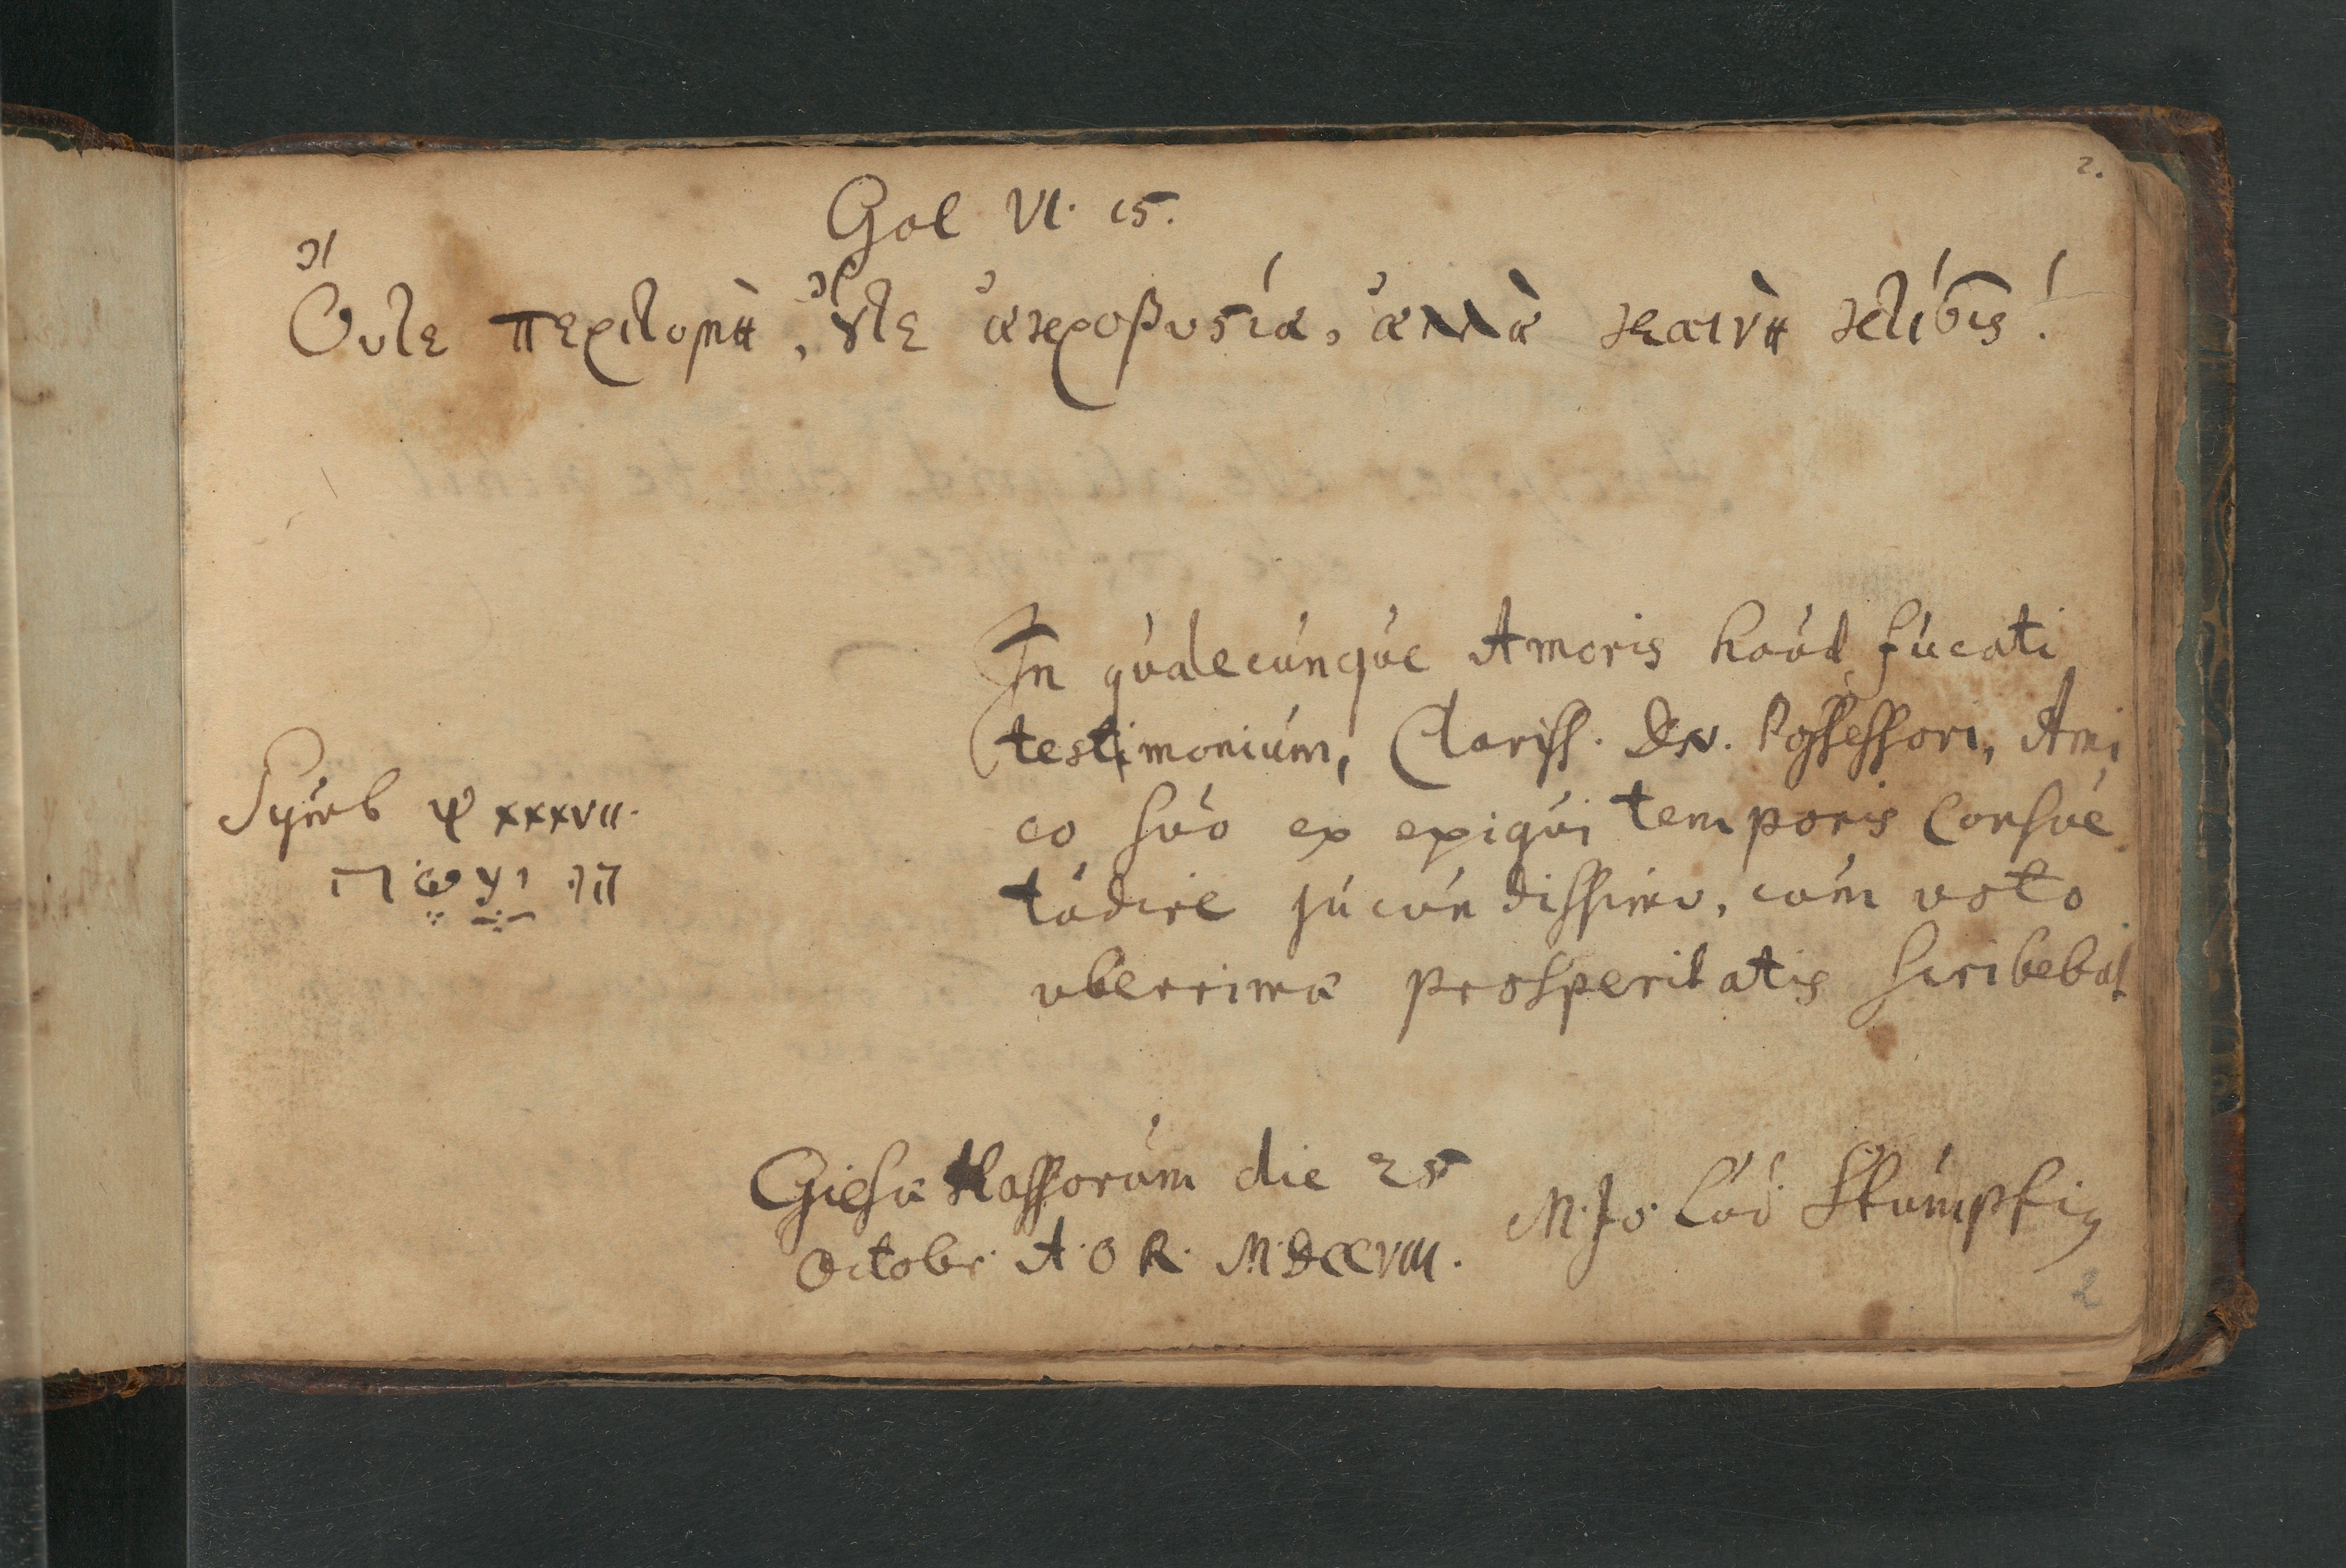 2.
Gal VI. 15.
Οὔτε περιτομὴ, ȣ̓́τε ἀκροβυστία, ἀλλὰ καινὴ κτίσις!
In qùalecùnqùe Amoris haùd fùcati
testimoniùm, Clariss. Dn. Possessori, Ami
co sùo ex exigùi temporis consùe
tùdine jùcùndissimo, cùm voto
uberrimæ prosperitatis scribebat
Symb ψ XXXVII.
והו יעשה
Giesæ Hassorùm die 25
Octobr. A. O R. MDCCVIII.
M. Jo. Lùd. Stùmpfiꝯ
2